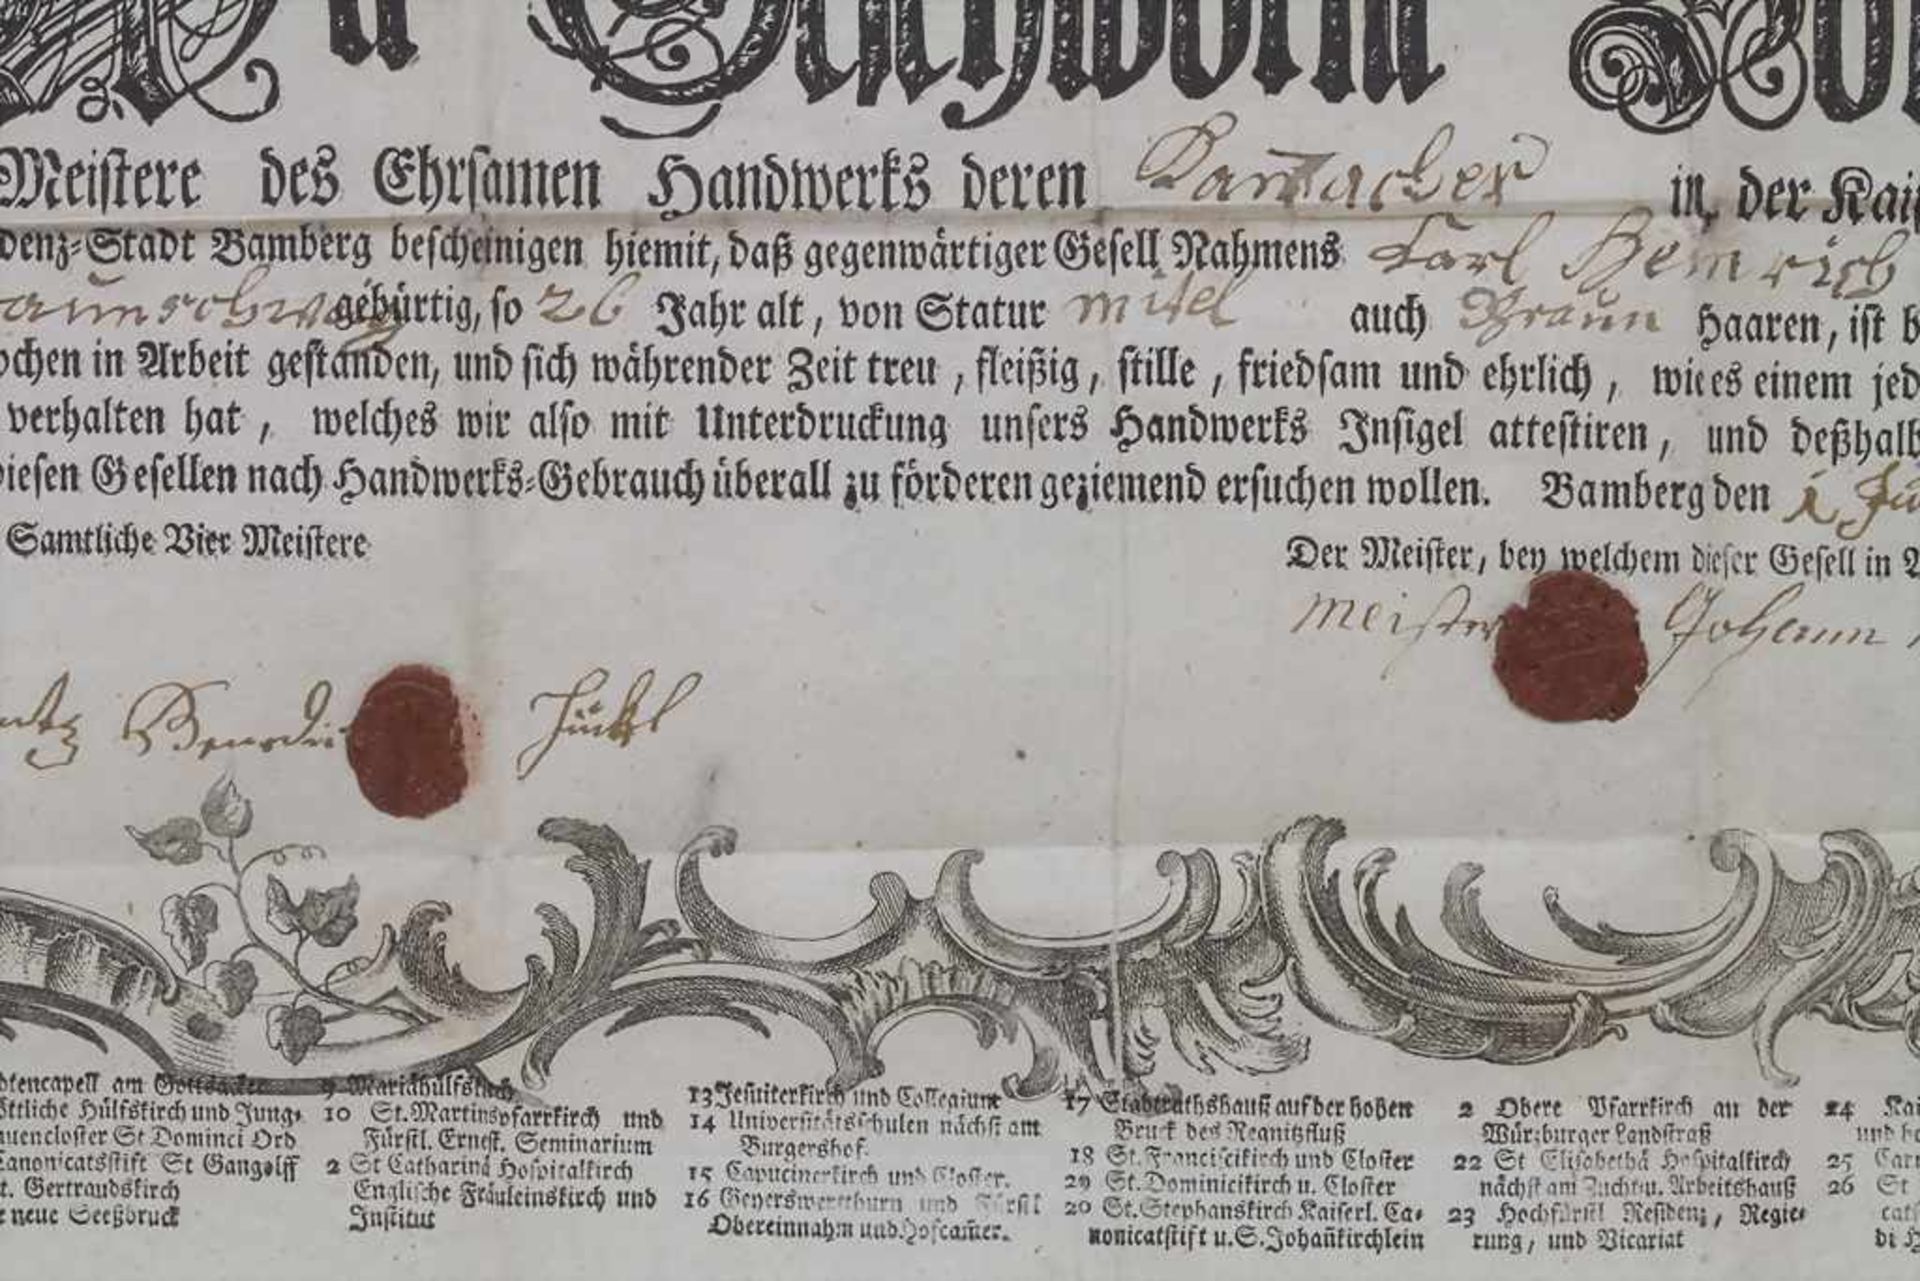 Geschworne
Meistere des Ehrsamen Handwerks deren in der Kais
denz-Stadt Bamberg bescheinigen hiemit, daß gegenwärtiger Gesell Nahmens Carl Heinrich
aunschweig gebürtig, so 26 Jahr alt, von Statur mitel auch Braun Haaren, ist b
ochen in Arbeit gestanden, und sich währender Zeit treu, fleißig, stille, friedsam und ehrlich, wie es einem jed
verhalten hat, welches wir also mit Unterdruckung unsers Handwerks Insigel attestiren, und deßhalb
diesen Gesellen nach Handwerks-Gebrauch überall zu förderen geziemend ersuchen wollen. Bamberg den 1 Ju
Samtliche Vier Meistere
Der Meister, bey welchem dieser Gesell in A
Meister Johann
Benedic
dtencapell am Gottsacker
öttliche Hülfskirch und Jung-
auencloster St Dominci Ord
Canonicatsstift St Gangolff
t. Gertraudskirch
r neue Seeßbruck
9 Mariahülfskirch
10 St. Martinspfarrkirch und
Fürstl. Ernest. Seminarium
2 St Catharinä Hospitalkirch
Englische Fräuleinskirch und
Institut
13 Jesuiterkirch und Collegium
14 Universitätsschulen nächst am
Burgershof.
15 Capucinerkirch und Closter.
16 Geyerswerthurn und Fürstl
Obereinnahm und Hofcamer.
17 Stadtrathshauß auf der hohen
Bruck des Reanitzfluß
18 St. Franciscikirch und Closter
29 St. Dominicikirch u. Closter
20 St. Stephanskirch Kaiserl. Ca-
nonicatstift u. S. Johankirchlein
2 Obere Pfarrkirch an der
Würzburger Landstraß
22 St Elisabethä Hospitalkirch
nächst am Zucht u. Arbeitshauß
23 Hochfürstl Residenz, Regie-
rung, und Vicariat
24 Kai
und
25 Car
26 St
cat
di H